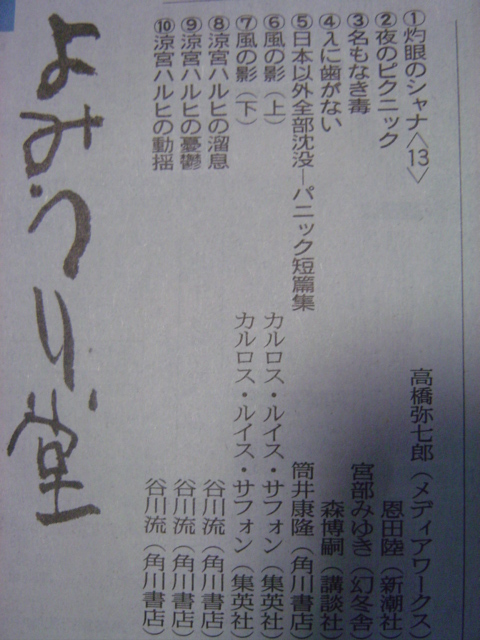 ①灼眼のシャナ〈13〉 高橋弥七郎（メディアワークス
②夜のピクニック 恩田陸（新潮社）
③名もなき毒 宮部みゆき（幻冬舎）
④λに歯がない 森博嗣（講談社）
⑤日本以外全部沈没―パニック短篇集 筒井康隆（角川書店）
⑥風の影（上） カルロス・ルイス・サフォン（集英社）
⑦風の影（下） カルロス・ルイス・サフォン（集英社）
⑧涼宮ハルヒの溜息 谷川流（角川書店）
⑨涼宮ハルヒの憂鬱 谷川流（角川書店）
⑩涼宮ハルヒの動揺 谷川流（角川書店）
よみうり堂